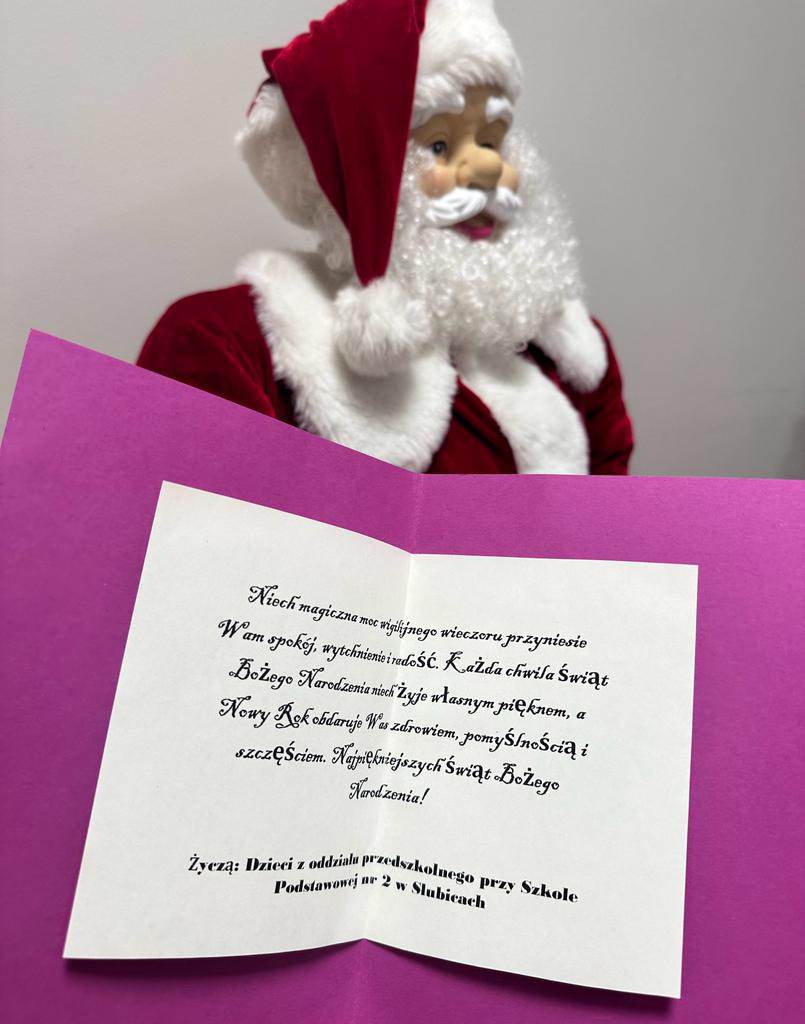 Niech magiczna moc wigilijnego wieczoru przyniesie
Wam spokój, wytchnienie i radość. Każda chwila Świąt
Bożego Narodzenia niech żyje własnym pięknem, a
Nowy Rok obdaruje Was zdrowiem, pomyślnością i
szczęściem. Najpiękniejszych Świąt Bożego
Narodzenia!
Życzą: Dzieci z oddziału przedszkolnego przy Szkole
Podstawowej nr 2 w Słubicach